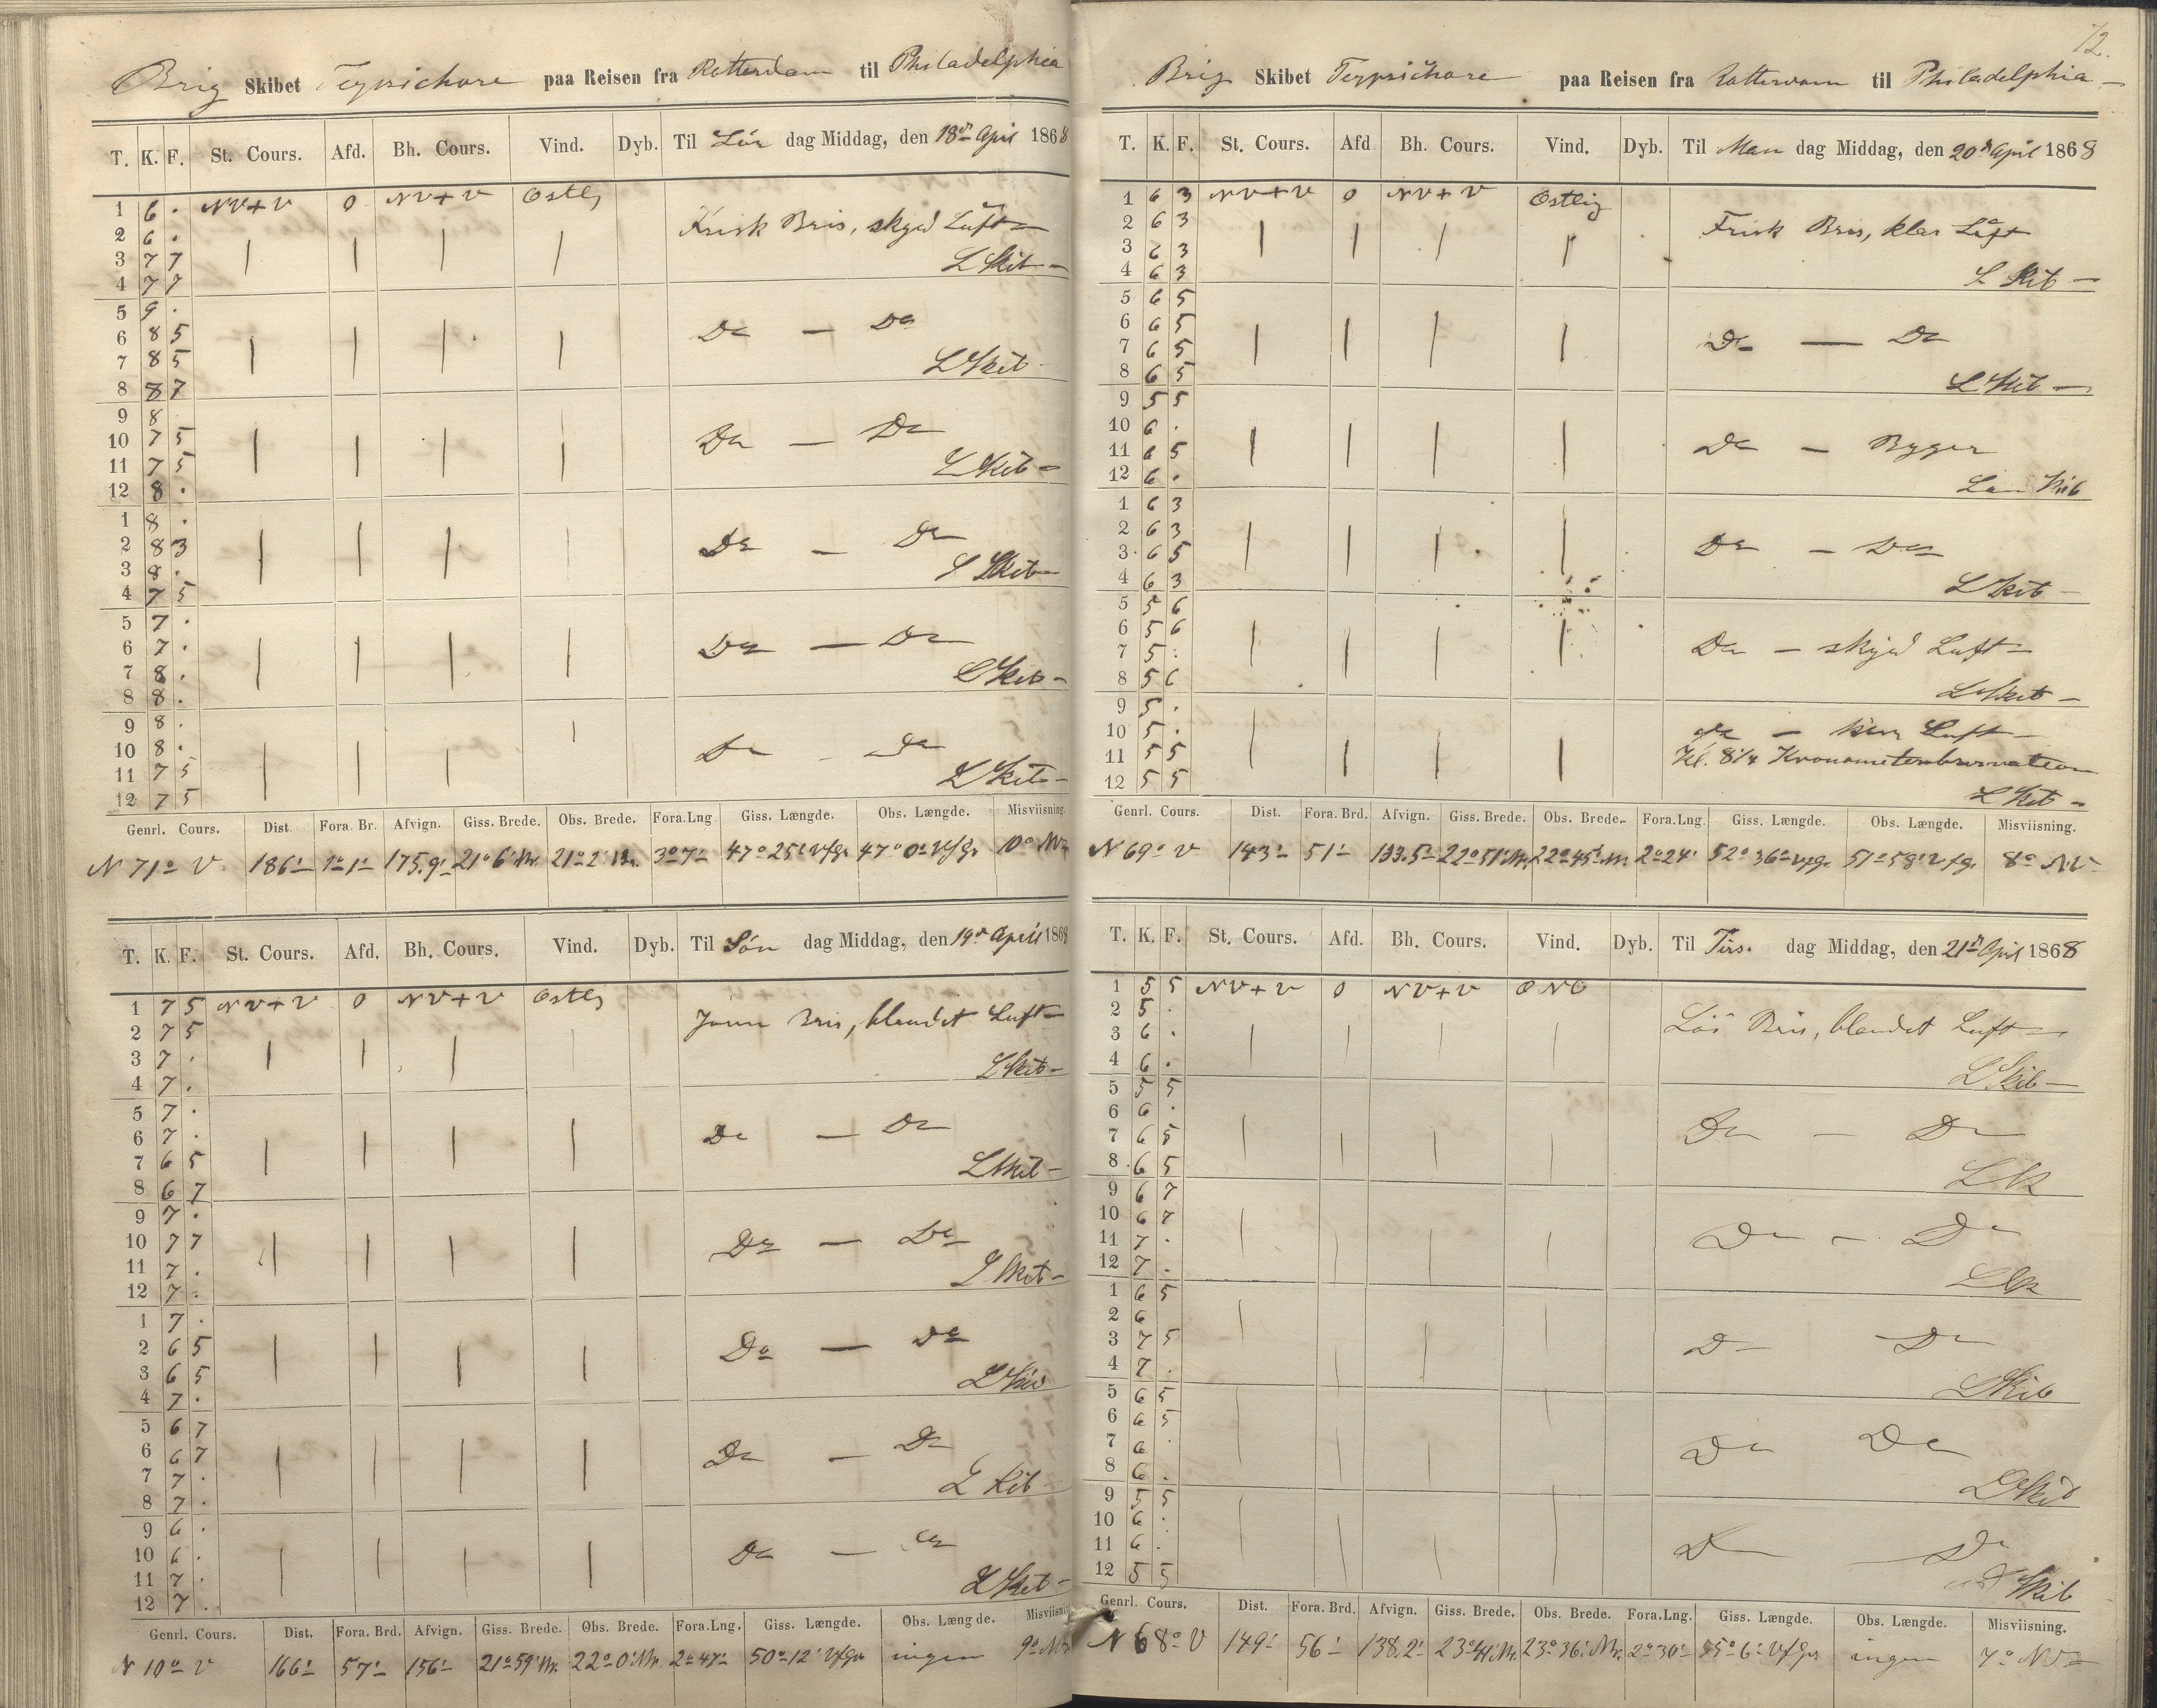 Brig Skibet Terpsichore paa Reisen fra Rotterdam til Philadelphia
T. K. F. St. Cours. Afd. Bh. Cours. Vind. Dyb. Til Lör dag Middag, den 18de April 1868
1 6 . NV+V 0 NV+V Ostlig
2 6 . Frisk Bris, skyed Luft
3 7 7 L Skib
4 7 7
5 9 .
6 8 5 Do — Do
7 8 5 L Skib
8 8 7
9 8
10 7 5 Do — Do
11 7 5 L Skib
12 8 .
1 8 .
2 8 3 Do — Do
3 8 . L Skib
4 7 5
5 7 .
6 7 . Do — Do
7 8 . L Skib
8 8 .
9 8 .
10 8 . Do — Do
11 7 5 L Skib
12 7 5
Genrl. Cours. Dist. Fora. Br. Afvign. Giss. Brede. Obs. Brede. Fora.Lng. Giss. Længde. Obs. Længde. Misviisning.
N 71° V 186' 1° 1' 175.9' 21° 6' Nr. 21° 2' Nr. 3° 7' 47° 25' Vfgr. 47° 0' Vfgr. 10° NV
T. K. F. St. Cours. Afd. Bh. Cours. Vind. Dyb. Til Sön dag Middag, den 19de April 1868
1 7 5 NV+V 0 NV+V Ostlig
2 7 5 Jevn Bris, blandet Luft
3 7 . L Skib
4 7 .
5 7 .
6 7 . Do — Do
7 6 5 L Skib
8 6 7
9 7 .
10 7 7 Do — Do
11 7 . L Skib
12 7 .
1 7 .
2 6 5 Do — Do
3 6 5 L Skib
4 7 .
5 6 7
6 6 7 Do — Do
7 7 . L Skib
8 7 .
9 6 .
10 6 . Do — Do
11 7 . L Skib
12 7 .
Genrl. Cours. Dist. Fora. Brd. Afvign. Giss. Brede. Obs. Brede. Fora.Lng. Giss. Længde. Obs. Længde. Misviisning
N 70° V 166' 57' 156' 21° 59' Nr. 22° 0' Nr. 2° 47' 50° 12' Vfgr. ingen 9° NV
72.
Brig Skibet Terpsichore paa Reisen fra Rotterdam til Philadelphia
T. K. F. St. Cours. Afd Bh. Cours. Vind. Dyb. Til Man dag Middag, den 20de April 1868
1 6 3 NV+V 0 NV+V Ostlig
2 6 3 Frisk Bris, klar Luft
3 6 3
4 6 3 L Skib
5 6 5
6 6 5 Do — Do
7 6 5
8 6 5 L Skib
9 5 5
10 6 . Do — Byger
11 6 5
12 6 . L Skib
1 6 3
2 6 3
3 6 5 Do — Do
4 6 3 L Skib
5 5 6
6 5 6
7 5 . Do — skyed Luft
8 5 6 L Skib
9 5 .
10 5 . do — klar Luft
11 5 5 Kl. 8 1/4 Kronometerobservation
12 5 5 L Skib
Genrl. Cours. Dist. Fora. Brd. Afvign. Giss. Brede. Obs. Brede. Fora.Lng. Giss. Længde. Obs. Længde. Misviisning.
N 69° V 143' 51' 133.5' 22° 51' Nr. 22° 45' Nr. 2° 24' 52° 36' Vfgr. 51° 58' Vfgr. 8° NV
T. K. F. St. Cours. Afd. Bh. Cours. Vind. Dyb. Til Tirs. dag Middag, den 21de April 1868
1 5 5 NV+V 0 NV+V ONO
2 5 . Lös Bris, blandet Luft
3 6 .
4 6 . L Skib
5 5 5
6 6 . Do — Do
7 6 5
8 6 5 L Sk
9 6 7
10 6 7 Do — Do
11 7 .
12 7 . L Sk
1 6 5
2 6
3 7 5 Do — Do
4 7 . L Skib
5 6 5
6 6 5 Do Do
7 6 .
8 6 . L Skib
9 5 5
10 6 .
11 6 . Do — Do
12 5 5 L Skib
Genrl. Cours. Dist. Fora. Brd. Afvign. Giss. Brede. Obs. Brede. Fora.Lng. Giss. Længde. Obs. Længde. Misviisning.
N 68° V 149' 56' 138.2' 23° 41' Nr. 23° 36' Nr. 2° 30' 55° 6' Vfgr ingen 7° NV